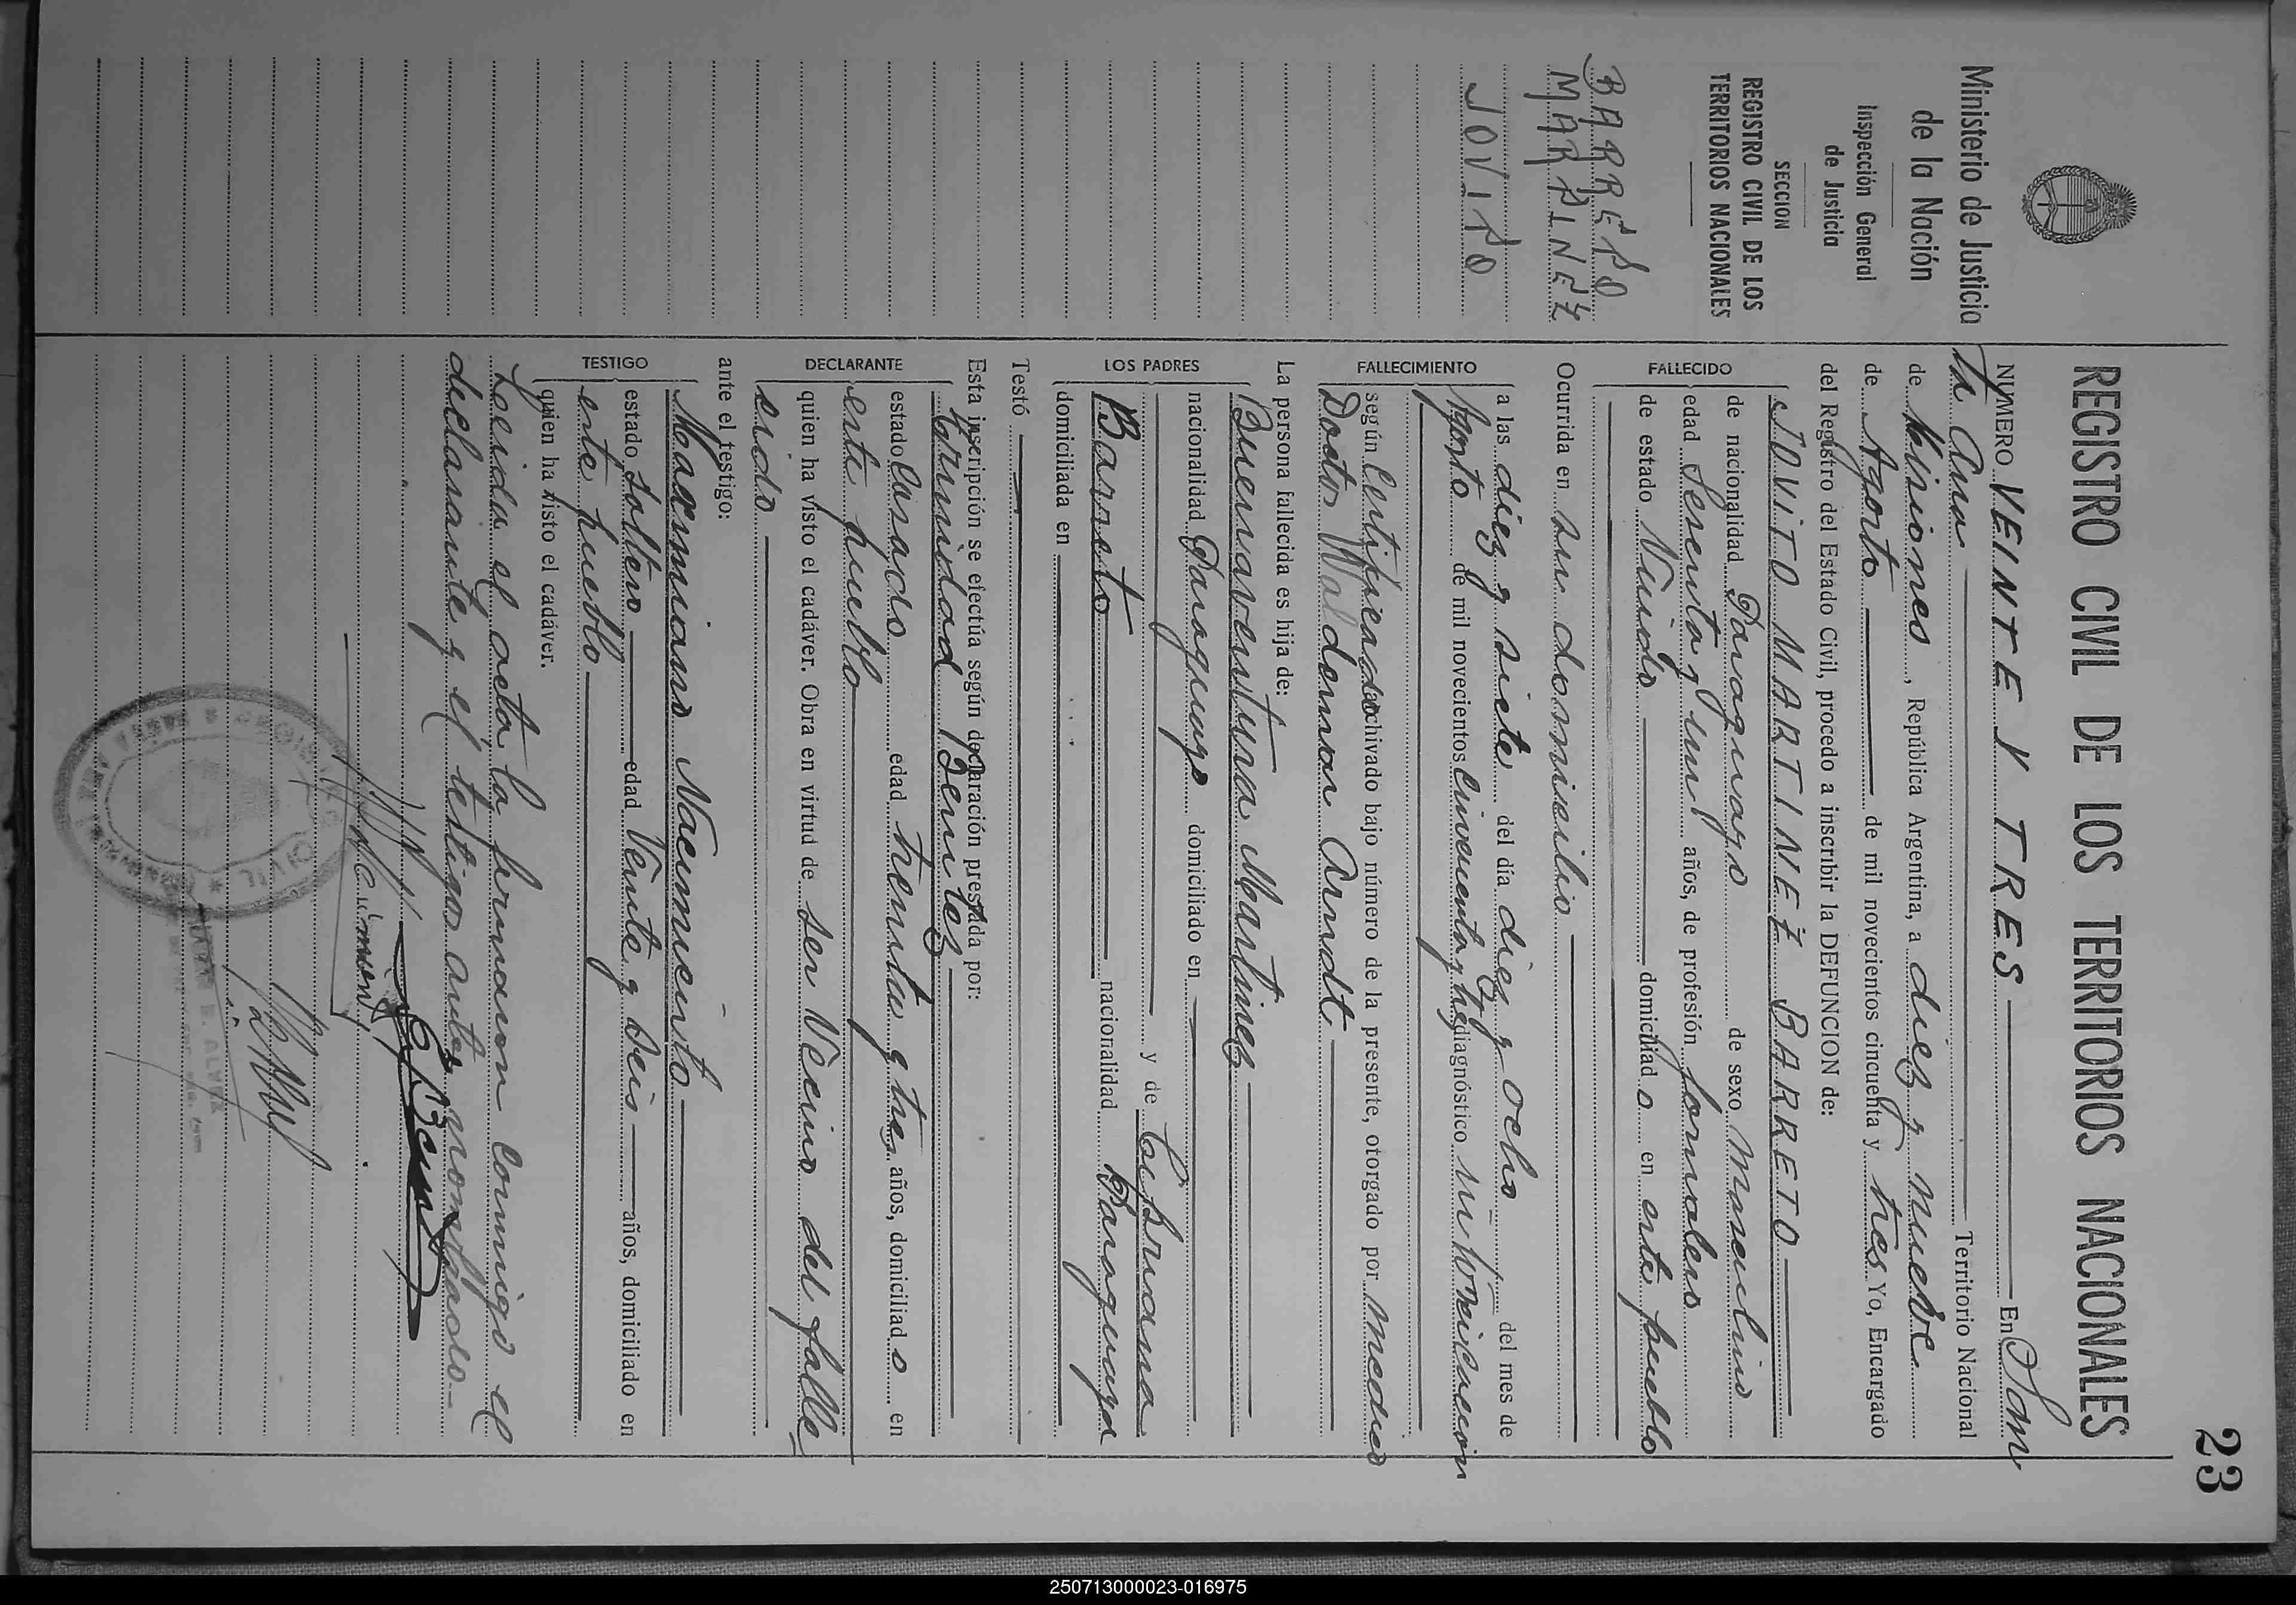 23
Ministerio de Justicia
de la Nación
Inspección General
de Justicia
SECCION
REGISTRO CIVIL DE LOS
TERRITORIOS NACIONALES
BARRETO
MARTINEZ
JOVITO
REGISTRO CIVIL DE LOS TERRITORIOS NACIONALES
NUMERO VEINTE Y TRES En San
ta Ana Territorio Nacional
de Misiones, República Argentina, a diez y nueve
de Agosto de mil novecientos cincuenta y tres Yo, Encargado
del Registro del Estado Civil, procedo a inscribir la DEFUNCION de:
FALLECIDO
JOVITO MARTINEZ BARRETO
de nacionalidad Paraguayo de sexo masculino
edad Sesenta y un años, de profesión Jornalero
de estado Viudo domiciliado en este pueblo
Ocurrida en su domicilio
FALLECIMIENTO
a las diez y siete del día diez y ocho del mes de
Agosto de mil novecientos cincuenta y tres diagnóstico intoxicacion
según Certificado archivado bajo número de la presente, otorgado por medico
Doctor Waldemar Arndt
La persona fallecida es hija de:
LOS PADRES
Buenaventura Martinez
nacionalidad Paraguayo domiciliado en
y de Cipriana
Barreto nacionalidad Paraguaya
domiciliada en
Testó
Esta inscripción se efectúa según declaración prestada por:
DECLARANTE
Trinidad Benitez
estado Casado edad treinta y tres años, domiciliado en
este pueblo
quien ha visto el cadáver. Obra en virtud de ser Vecino del falle
cido
ante el testigo:
TESTIGO
Maximiano Nacimiento
estado soltero edad Veinte y Seis años, domiciliado en
este pueblo
quien ha visto el cadáver.
Leida el acta la firmaron conmigo el
declarante y el testigo antes nombrado
CIVIL
250713000023-016975